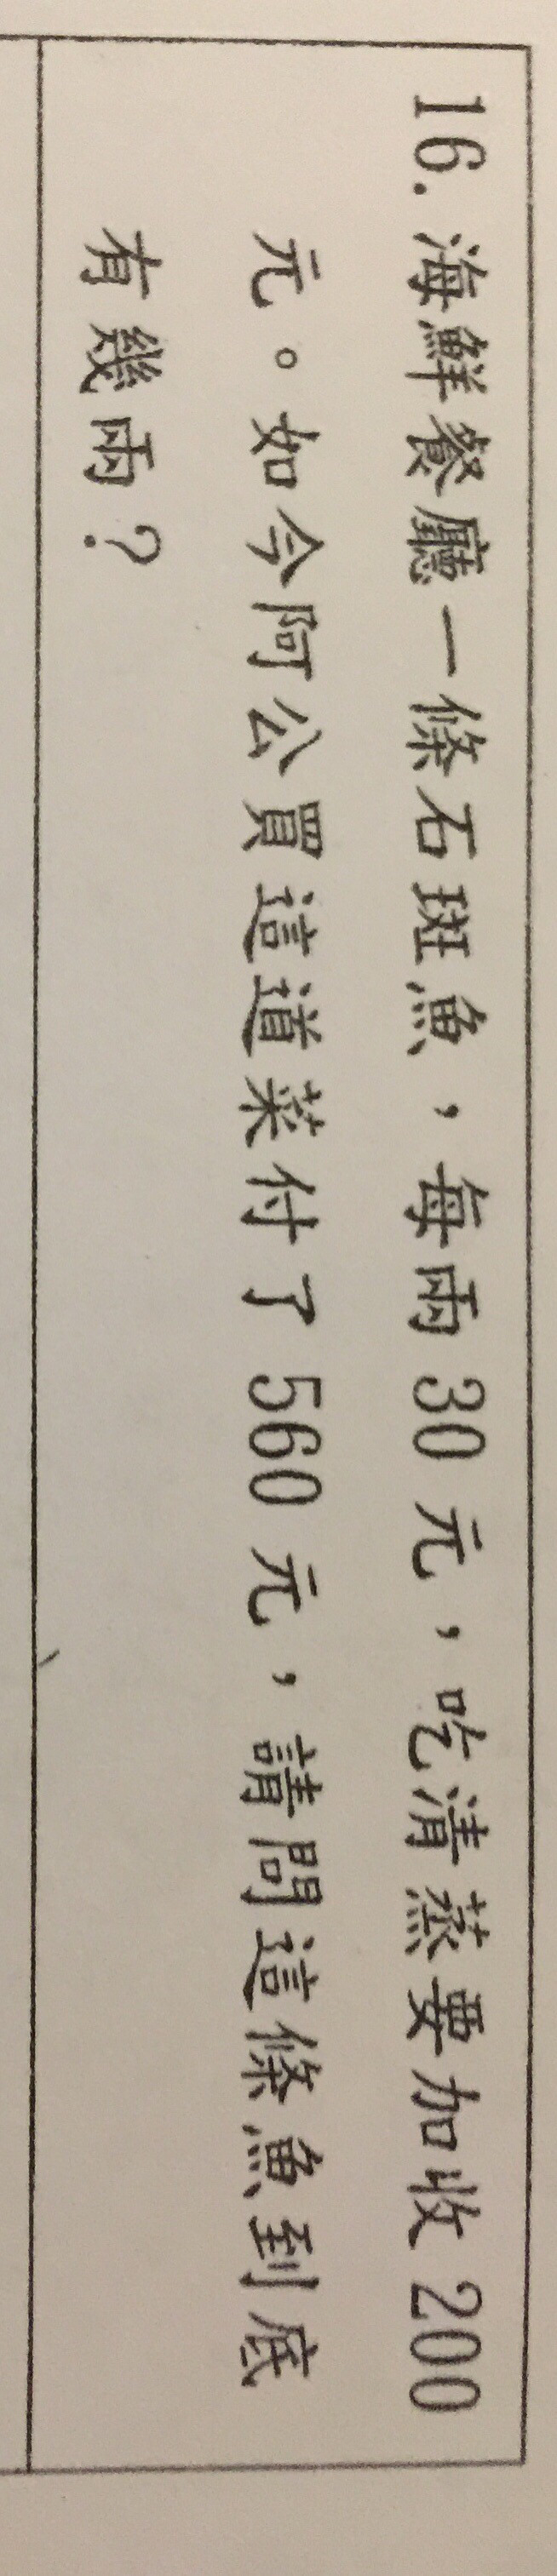 16. 海鮮餐廳一條石斑魚，每兩 30 元，吃清蒸要加收 200
元。如今阿公買這道菜付了 560 元，請問這條魚到底
有幾兩？